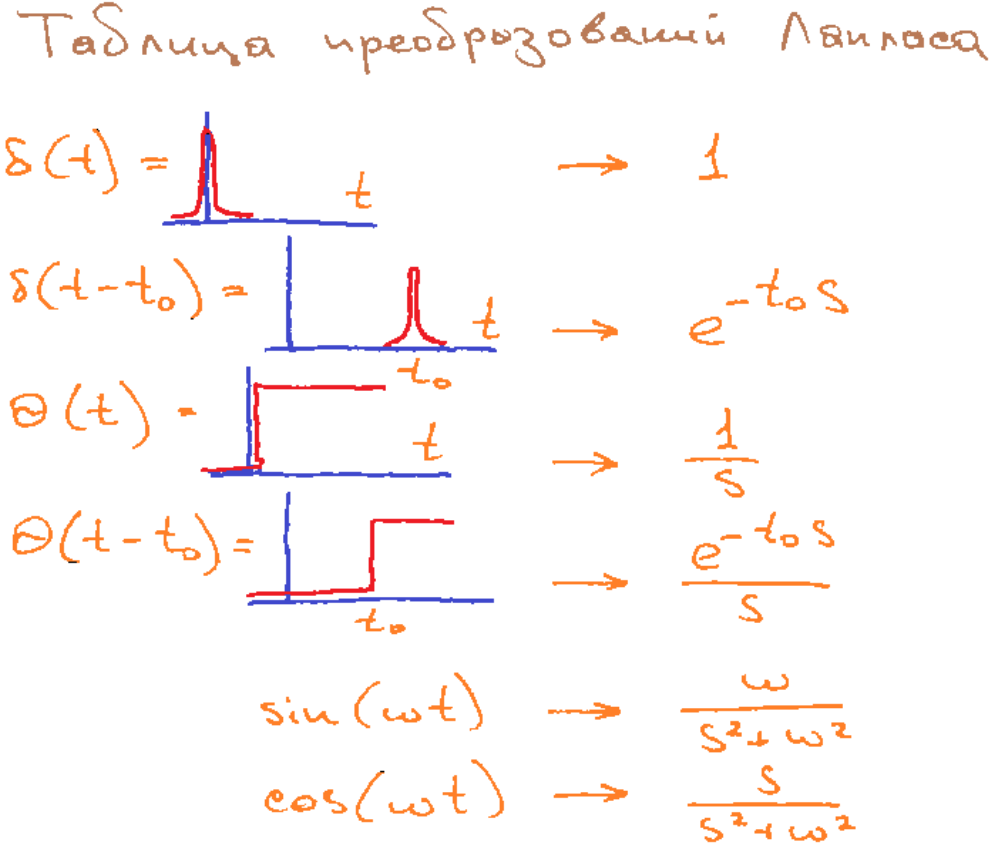 Таблица преобрзований Лапласа
δ(t) = t → 1
δ(t-t₀) = t t₀ → e^{-t₀s}
Θ(t) = t → 1/s
Θ(t-t₀) = t₀ → e^{-t₀s}/s
sin(ωt) → ω/(s²+ω²)
cos(ωt) → s/(s²+ω²)